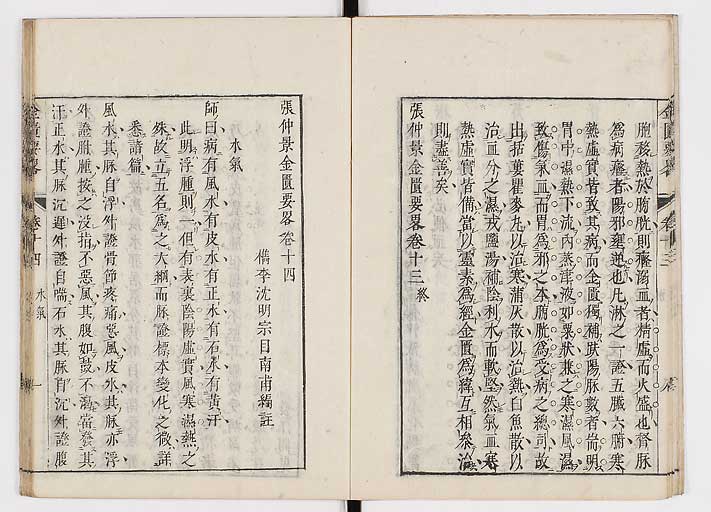 胞移熱於膀胱則癃溺血者精虛而火盛也督脉
為病癃者陽邪壅遏也凡淋之一證五臟六腑寒
熱虛實皆致其病而金匱獨補趺陽脉數者耑明
胃中濕熱下流內蒸津液如粟狀兼之寒濕風濕
致傷氣血而胃為邪之本膀胱為受病之總司故
出括蔞瞿麥丸以治寒蒲灰散以治熱白魚散以
治血分之濕戎鹽湯補陰利水而軟堅然氣血寒
熱虛實皆備當以靈素為經金匱為緯互相叅治
則盡善矣
張仲景金匱要畧卷十三 終
張仲景金匱要畧卷十四
檇李沈明宗目南甫編註
水氣
師曰病有風水有皮水有正水有石水有黃汗
此明浮腫則一但有表裏陰陽虛實風寒濕熱之
殊故立五名為之大綱而脉證標本變化之微詳
悉諸篇
風水其脉自浮外證骨節疼痛惡風皮水其脉亦浮
外證胕腫按之沒指不惡風其腹如鼓不渴當發其
汗正水其脉沉遲外證自喘石水其脉自沉外證腹
金匱要畧
卷十四
水氣
一